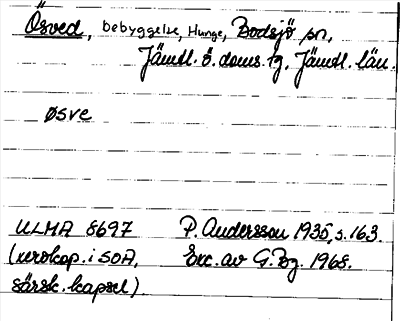 Ösved, bebyggelse, Hunge, Bodsjö sn,
Jämtl. ö. doms. tg. Jämtl. län.
ØSve
ULMA 8697 P. Andersson 1935, s. 163.
(xerokop. i SOA, Exc. av G. Bg. 1968.
särsk. kapsel).